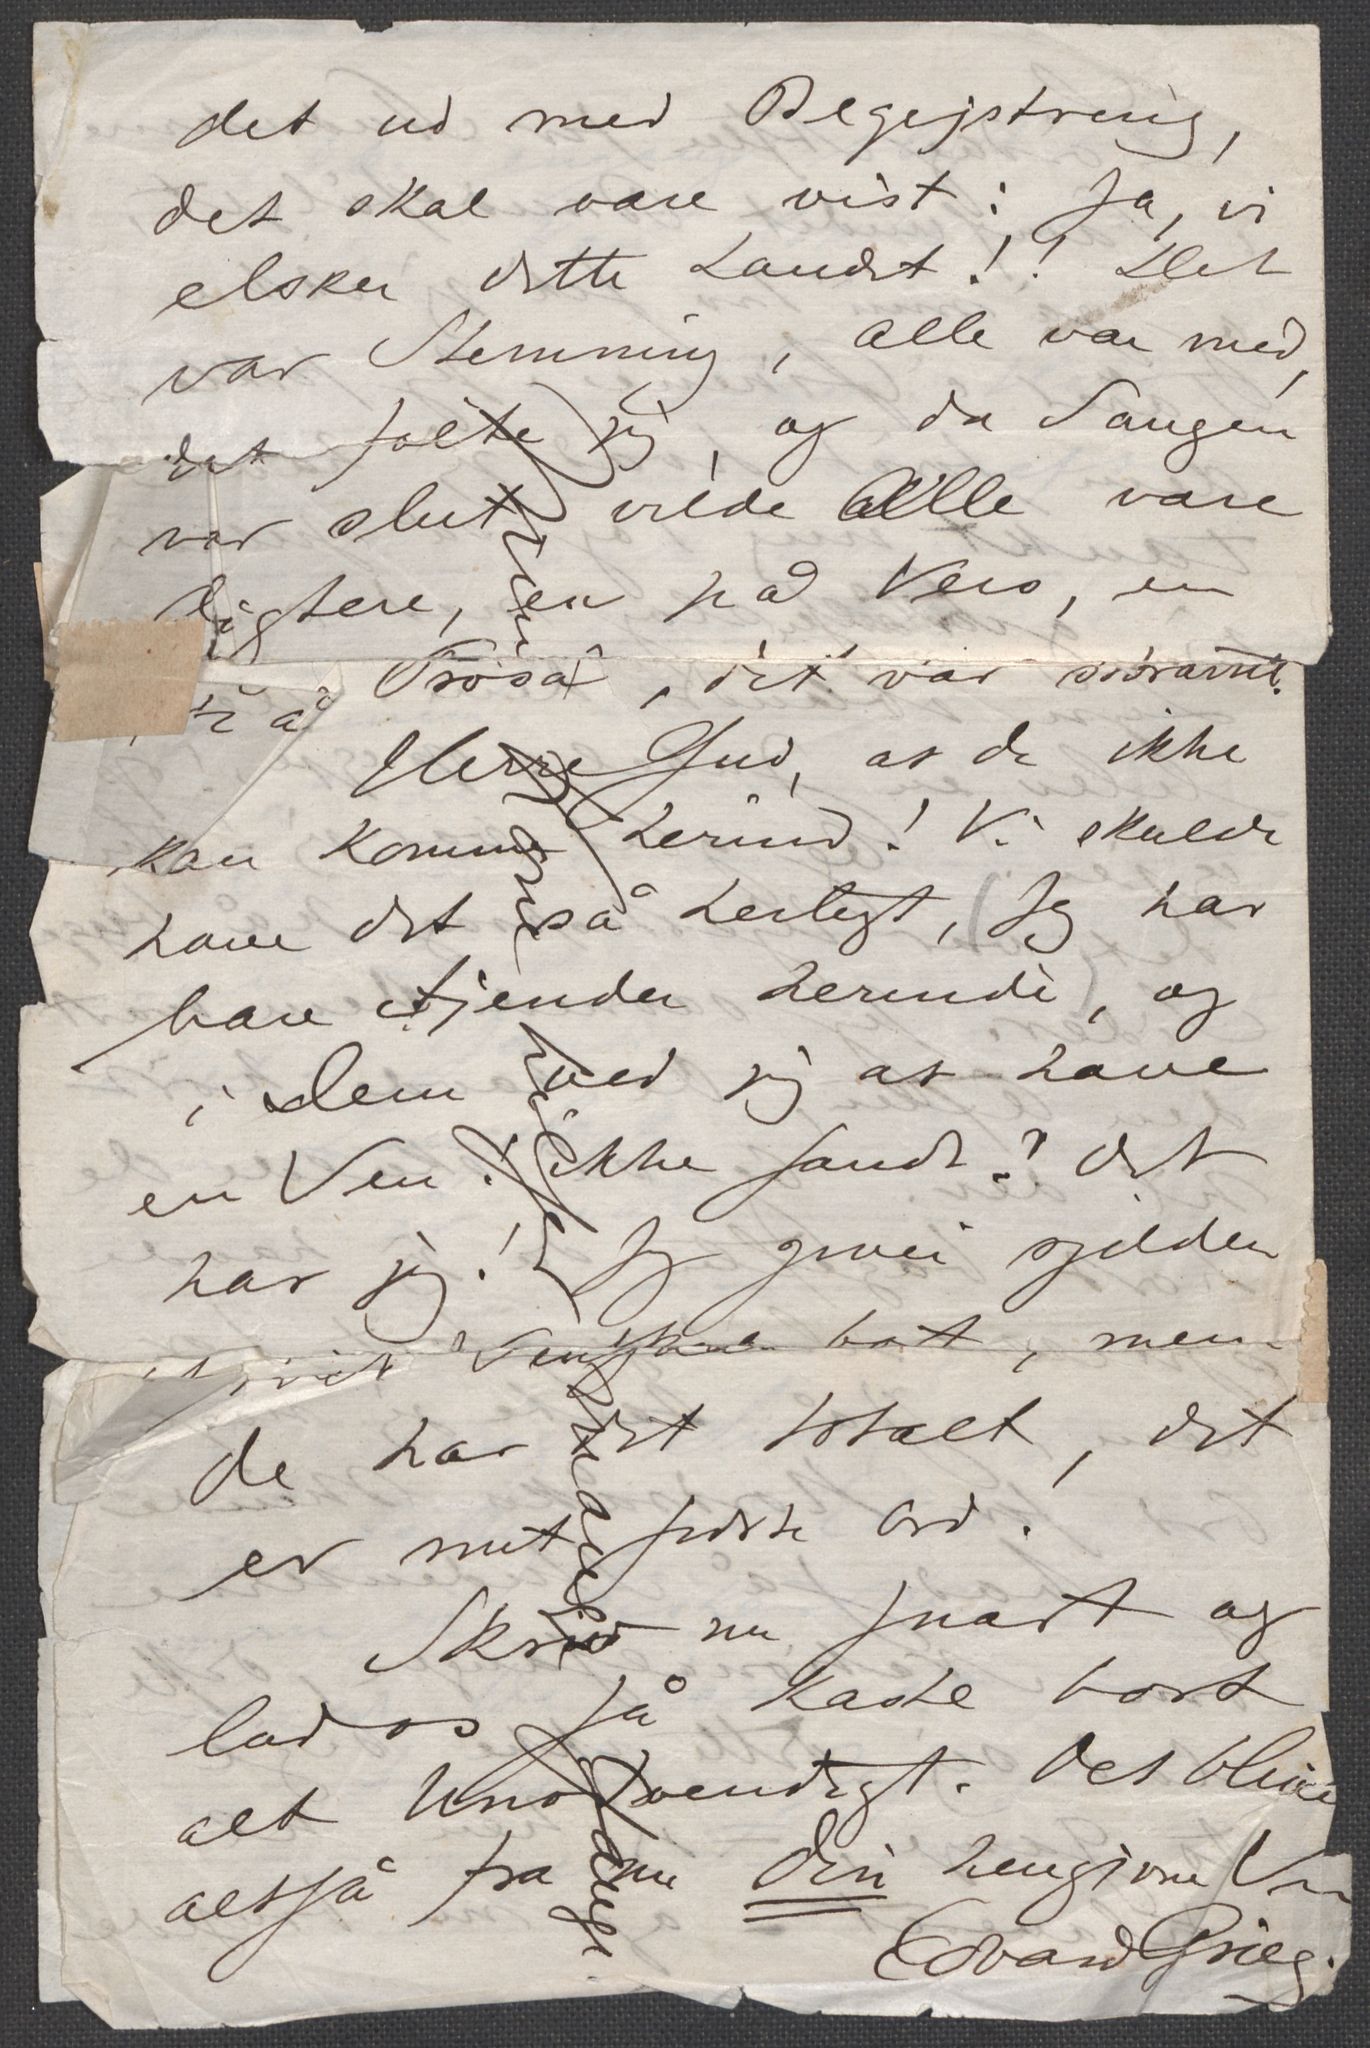 det ud med Begejstring,
det skal være vist: Ja, vi
elsker dette Landet!! Det
var Stemning, alle var med,
det følte jeg, og da Sangen
var slut, vilde Alle være
Digtere, en på Vers, en
på Prosa, det var
Herre Gud, at De ikke
kan komme herind! Vi skulde
have det så herligt, Jeg har
bare Fjender herinde, og
i Dem ved jeg at have
en Ven! ikke sandt? Det
har jeg! Jeg giver sjelden
mit Venskab bort, men
De har det totalt, det
er mit sidste Ord.
Skriv nu snart og
lad os så kaste bort
alt Unødvendigt. Det bliver
altså fra nu Din hengivne Ven
Edvard Grieg.